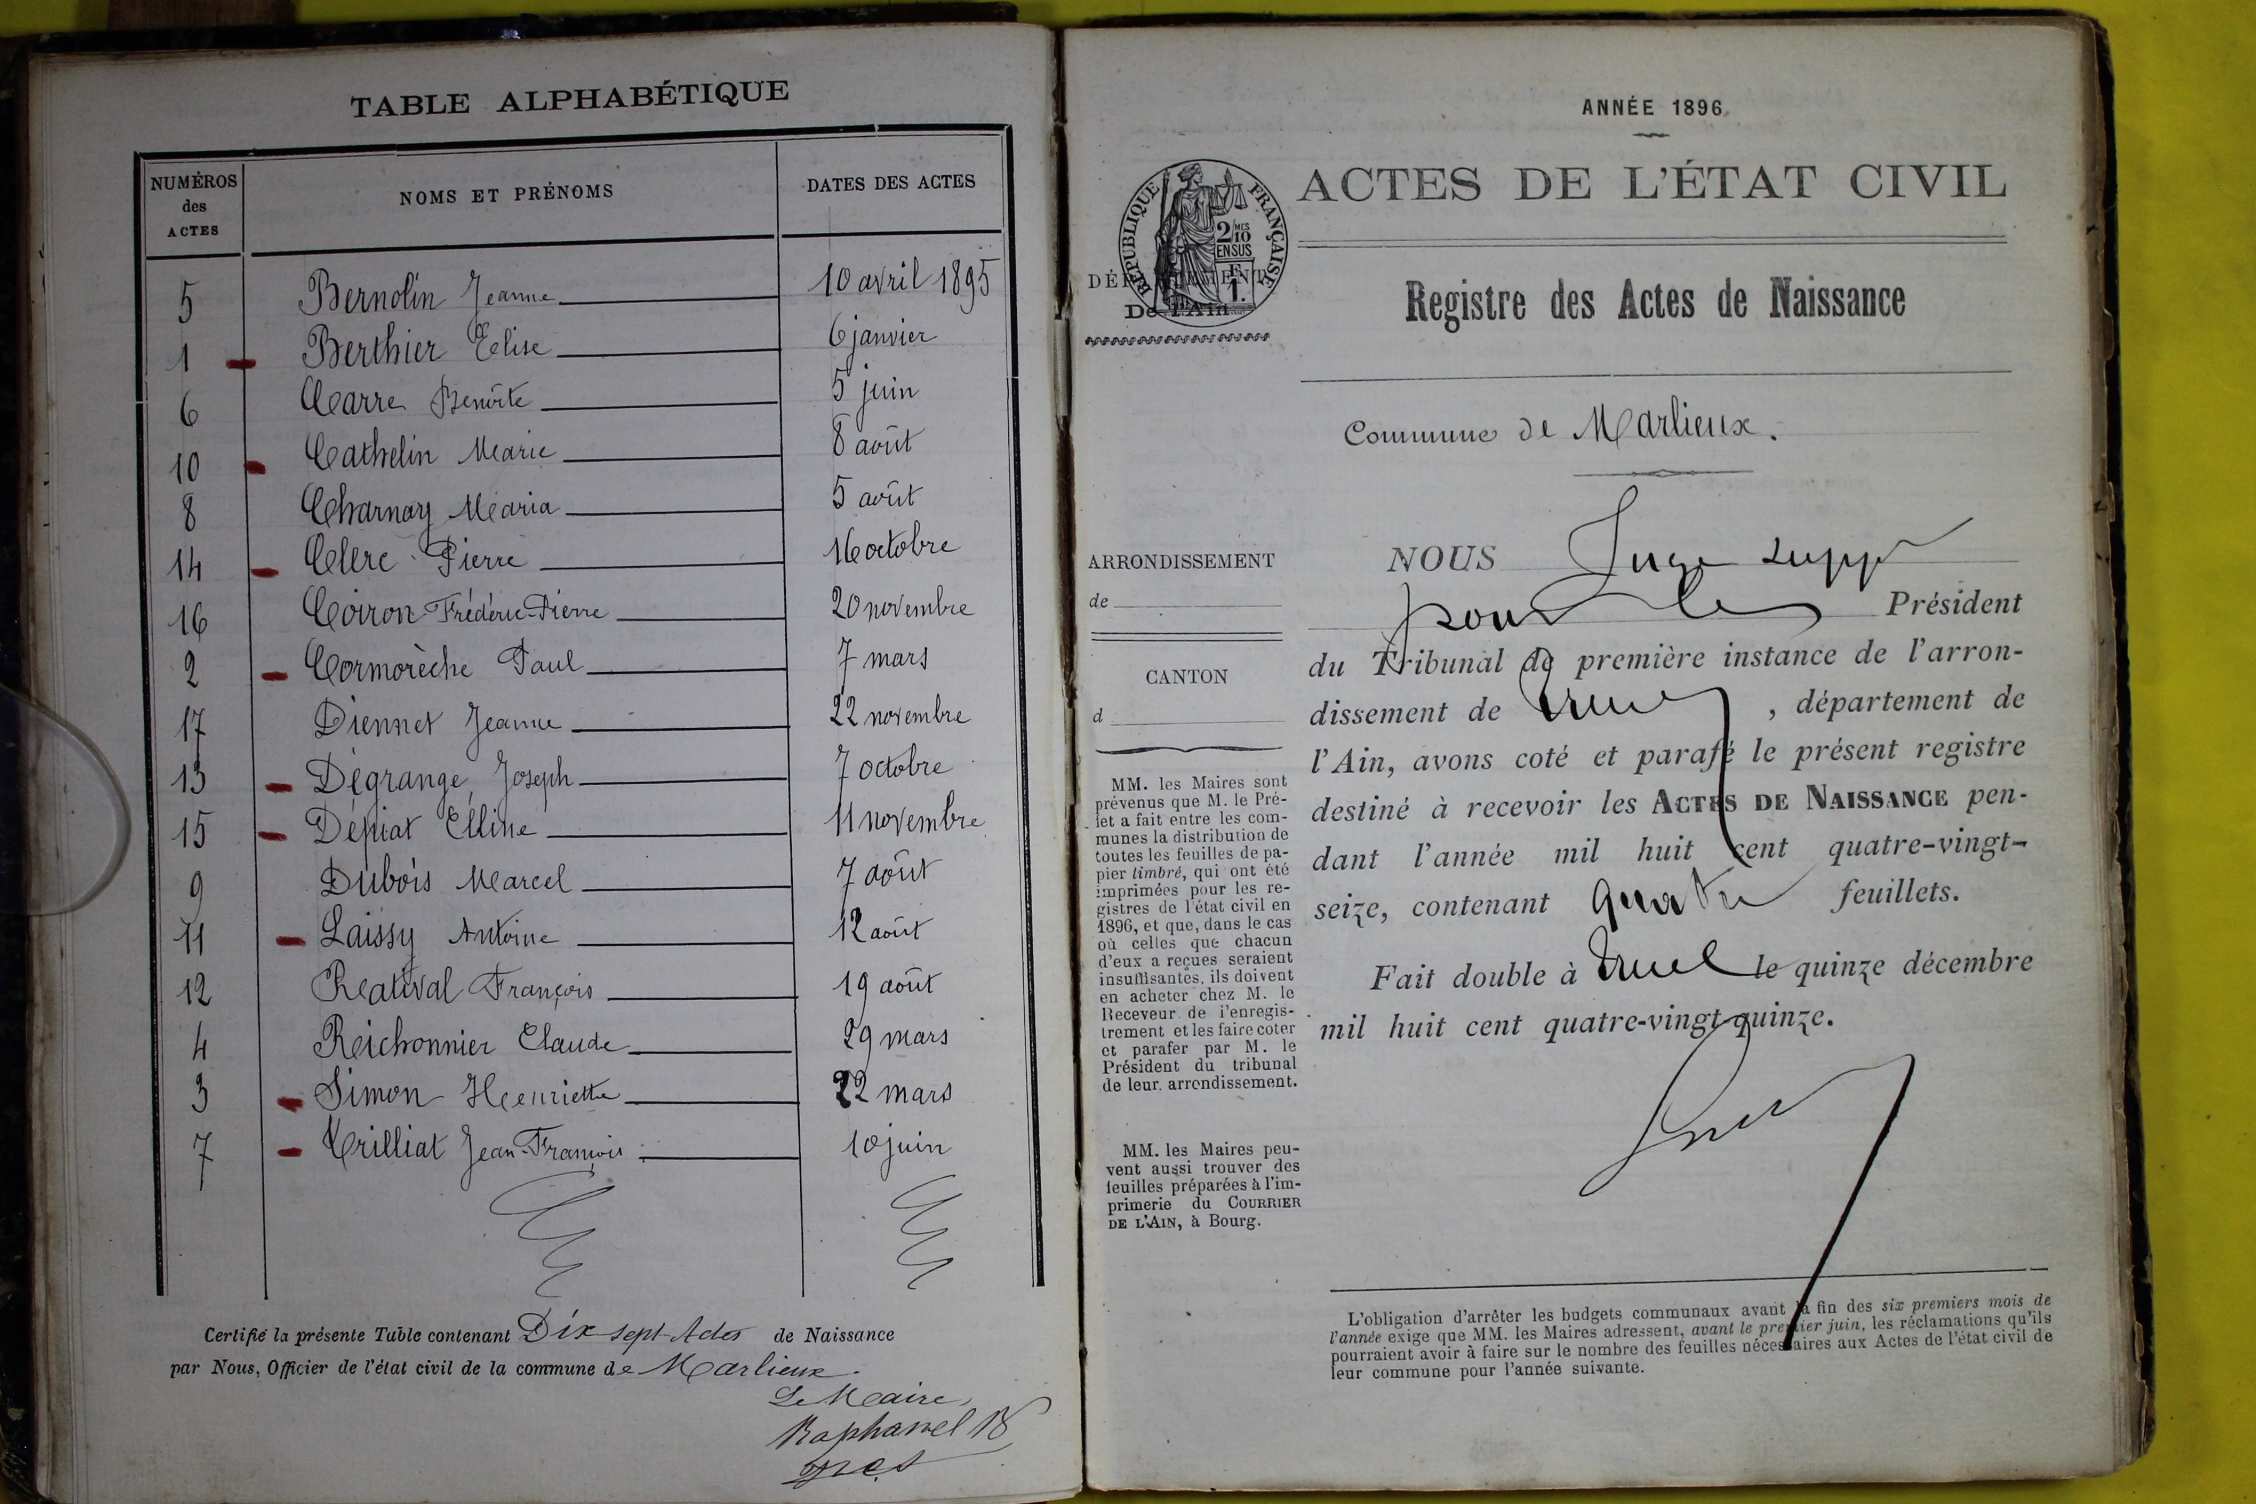 TABLE ALPHABÉTIQUE
NUMÉROS des ACTES NOMS ET PRÉNOMS DATES DES ACTES
5 Bernolin Jeanne 10 avril 1895
1 Berthier Élise 6 janvier
6 Carre Benoîte 5 juin
10 Cathelin Marie 8 août
8 Charnay Maria 5 août
14 Clerc Pierre 16 octobre
16 Coiron Frédéric-Pierre 20 novembre
2 Cormorèche Paul 7 mars
17 Diennet Jeanne 22 novembre
13 Dégrange, Joseph 7 octobre
15 Dépiat Élline 11 novembre
9 Dubois Marcel 7 août
11 Laissy Antoine 12 août
12 Reatival François 19 août
4 Reichonnier Claude 29 mars
3 Simon Henriette 22 mars
7 Trilliat Jean-François 10 juin
Certifié la présente Table contenant Dix-sept Actes de Naissance
par Nous, Officier de l'état civil de la commune de Marlieux.
Le Maire,
Raphanel
ANNÉE 1896.
ACTES DE L'ÉTAT CIVIL
RÉPUBLIQUE FRANÇAISE
2 MES
10
EN SUS
1 F.
DÉPARTEMENT
De l'Ain
Registre des Actes de Naissance
Commune de Marlieux.
ARRONDISSEMENT
de
CANTON
d
MM. les Maires sont
prévenus que M. le Pré-
fet a fait entre les com-
munes la distribution de
toutes les feuilles de pa-
pier timbré, qui ont été
imprimées pour les re-
gistres de l'état civil en
1896, et que, dans le cas
où celles que chacun
d'eux a reçues seraient
insuffisantes, ils doivent
en acheter chez M. le
Receveur de l'enregis-
trement et les faire coter
et parafer par M. le
Président du tribunal
de leur arrondissement.
MM. les Maires peu-
vent aussi trouver des
feuilles préparées à l'im-
primerie du COURRIER
DE L'AIN, à Bourg.
NOUS Juge supp
pour le Président
du Tribunal de première instance de l'arron-
dissement de , département de
l'Ain, avons coté et parafé le présent registre
destiné à recevoir les ACTES DE NAISSANCE pen-
dant l'année mil huit cent quatre-vingt-
seize, contenant quatre feuillets.
Fait double à le quinze décembre
mil huit cent quatre-vingt quinze.
L'obligation d'arrêter les budgets communaux avant la fin des six premiers mois de
l'année exige que MM. les Maires adressent, avant le premier juin, les réclamations qu'ils
pourraient avoir à faire sur le nombre des feuilles nécessaires aux Actes de l'état civil de
leur commune pour l'année suivante.